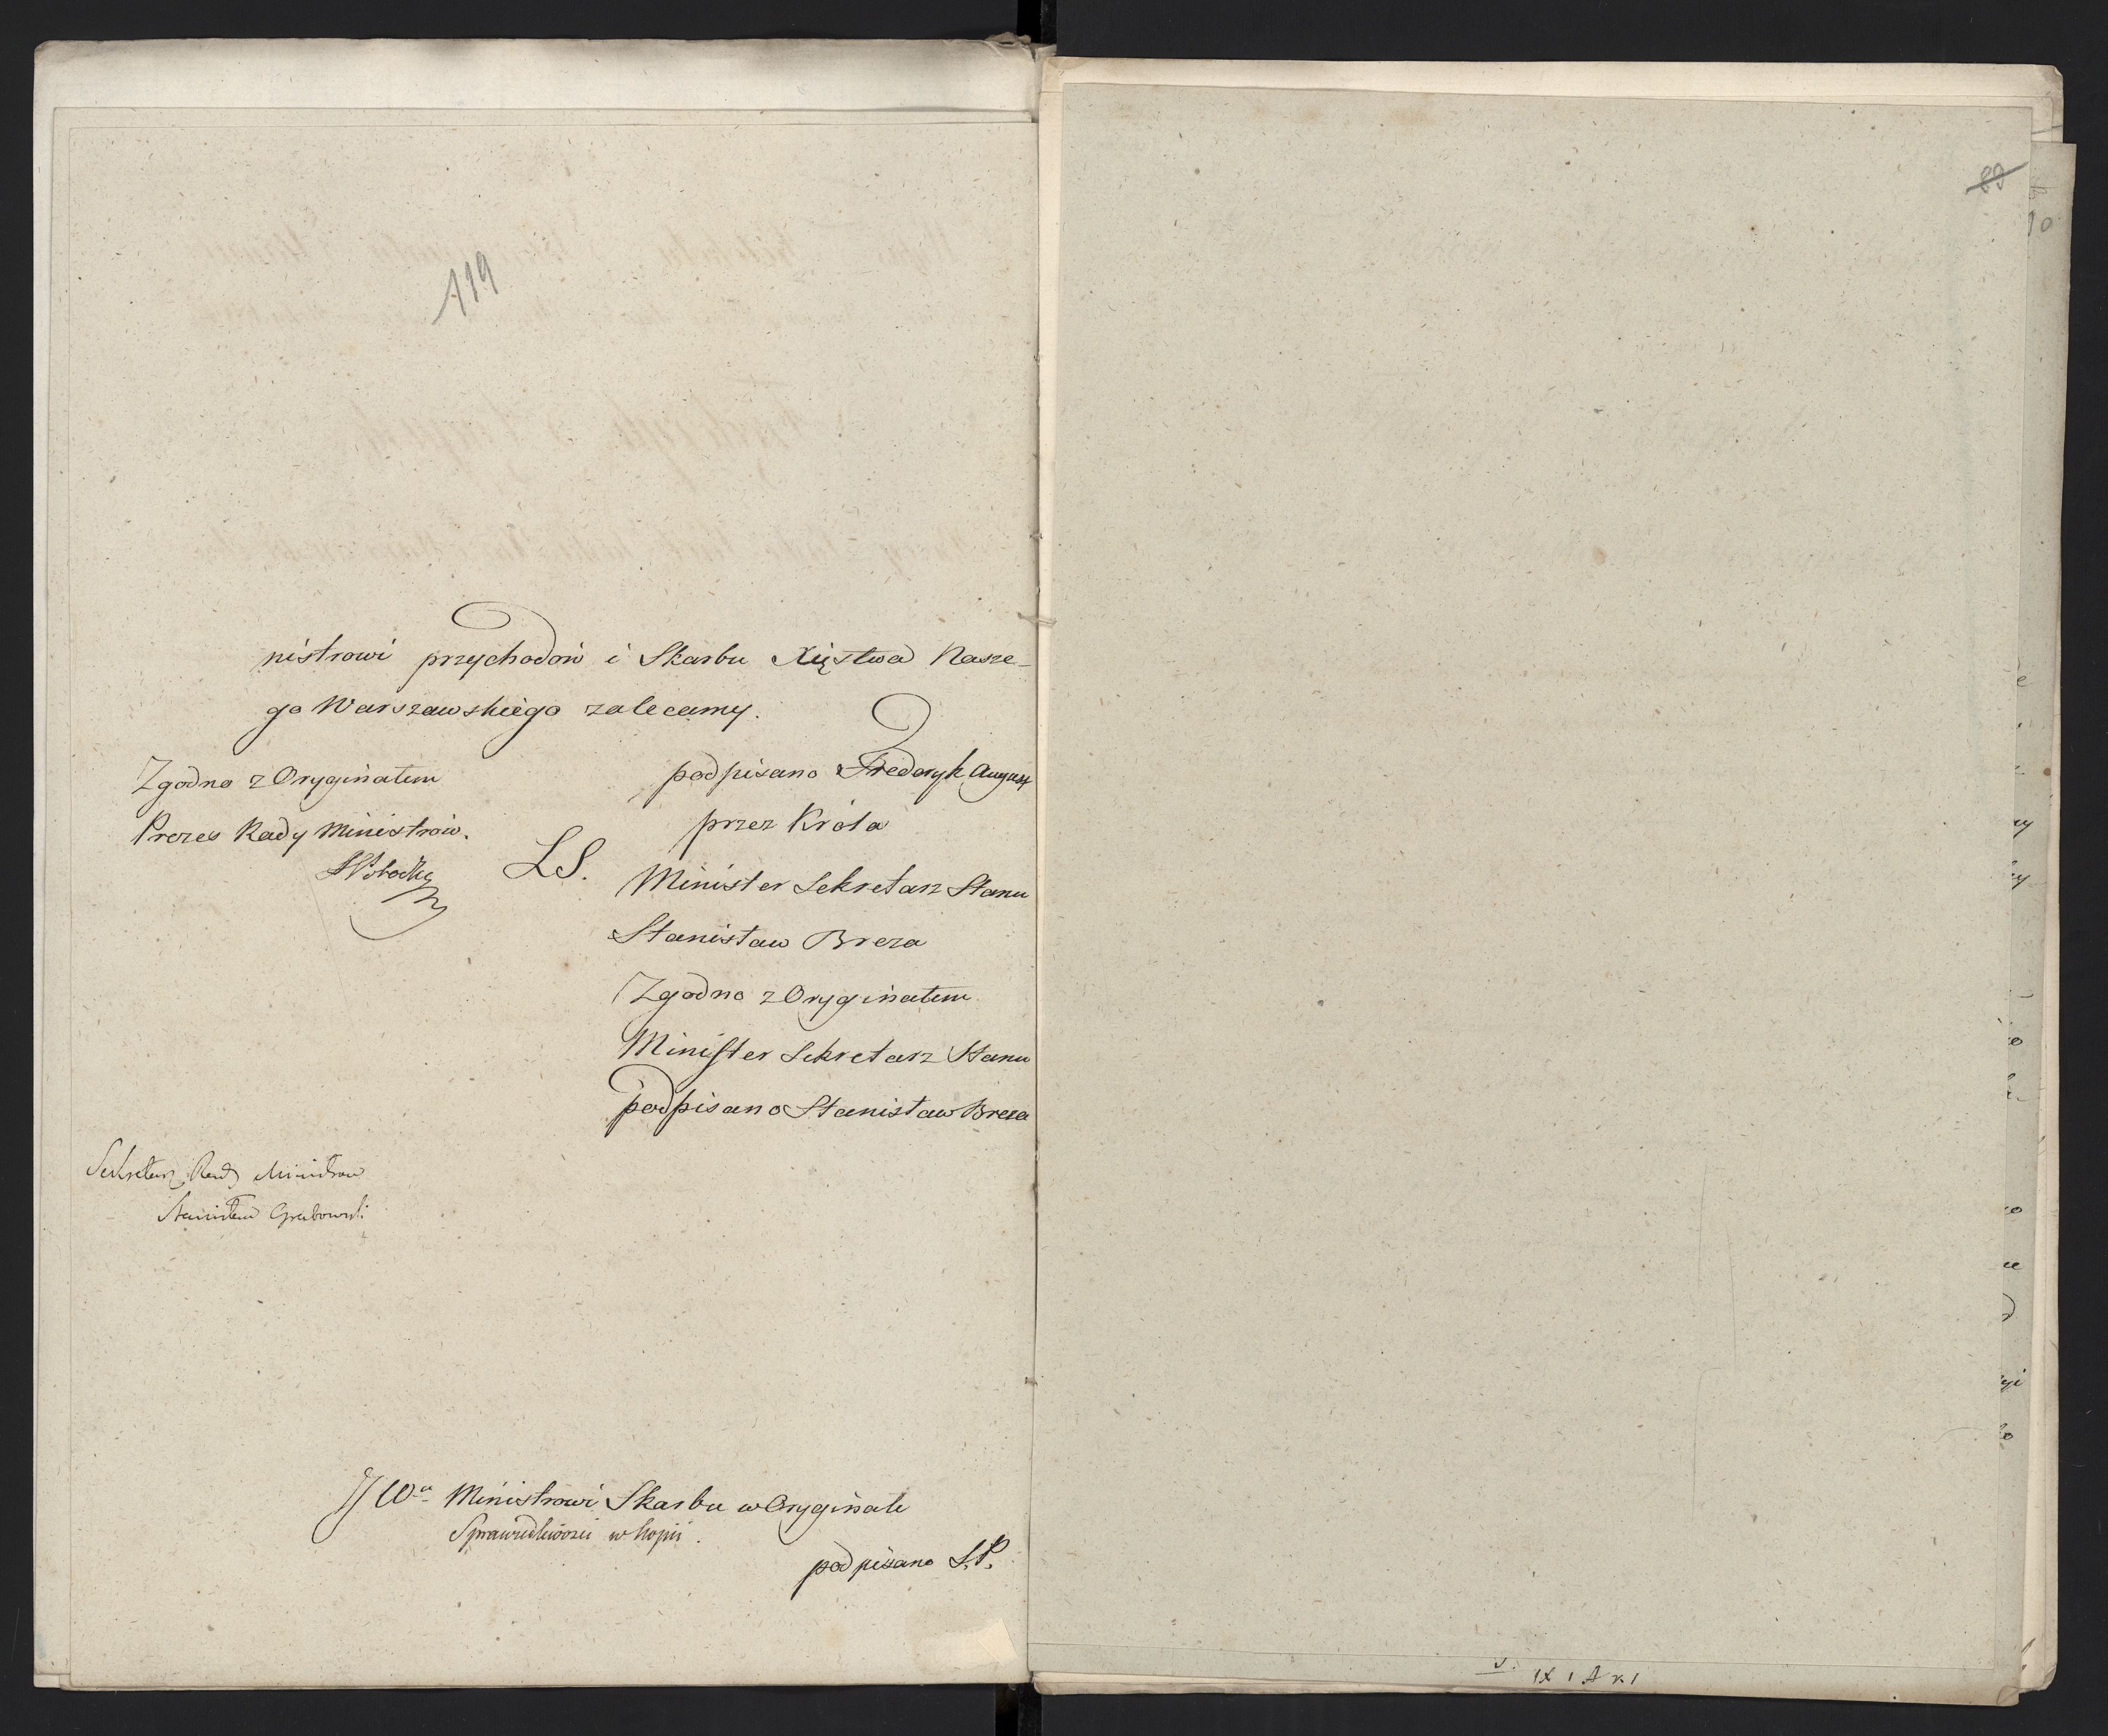 119
nistrowi przychodów i Skarbu Xięstwa Nasze-
go Warszawskiego zalecamy.
Zgodno z Oryginałem
Prezes Rady Ministrów.
LS.
podpisano Frederyk August
przez Króla
Minister Sekretarz Stanu
Stanisław Breza
Zgodno z Oryginałem
Minister Sekretarz Stanu
podpisano Stanisław Breza
Sekretarz Rady Ministrow
Stanisław Grabowski
JW Ministrowi Skarbu w Oryginale
Sprawiedliwości w kopii.
podpisano S. P.
89